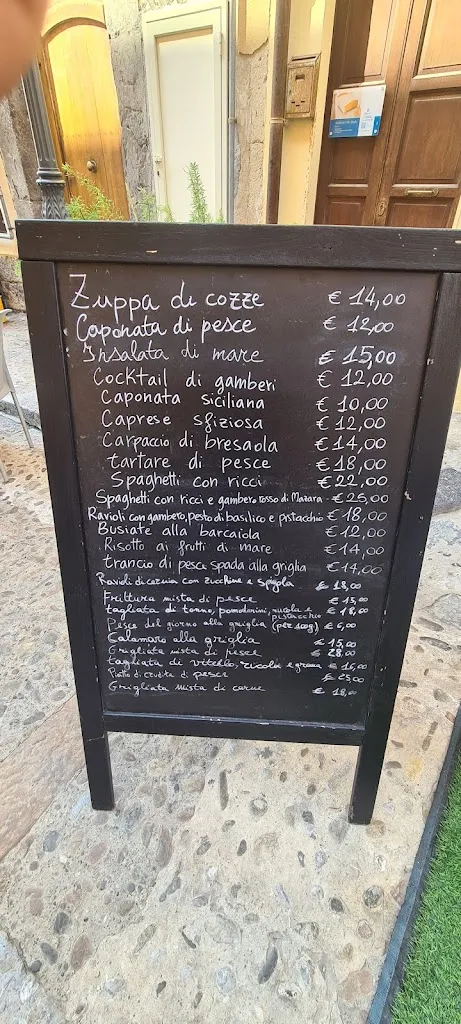 Zuppa di cozze € 14,00
Caponata di pesce € 12,00
Insalata di mare € 15,00
Cocktail di gamberi € 12,00
Caponata siciliana € 10,00
Caprese sfiziosa € 12,00
Carpaccio di bresaola € 14,00
tartare di pesce € 18,00
Spaghetti con ricci € 22,00
Spaghetti con ricci e gambero rosso di Mazara - € 25,00
Ravioli con gambero, pesto di basilico e pistacchio € 18,00
Busiate alla barcaiola € 12,00
Risotto ai frutti di mare € 14,00
trancio di pesce spada alla griglia € 14,00
Ravioli di cernia con zucchine e spigola € 18,00
Frittura mista di pesce € 15,00
tagliata di tonno, pomodorini, rucola e pistacchio € 18,00
Pesce del giorno alla griglia (per 100g) € 6,00
Calamaro alla griglia € 15,00
Grigliata mista di pesce € 28,00
tagliata di vitello, rucola e grana € 16,00
Piatto di crudità di pesce € 25,00
Grigliata mista di carne € 18,00